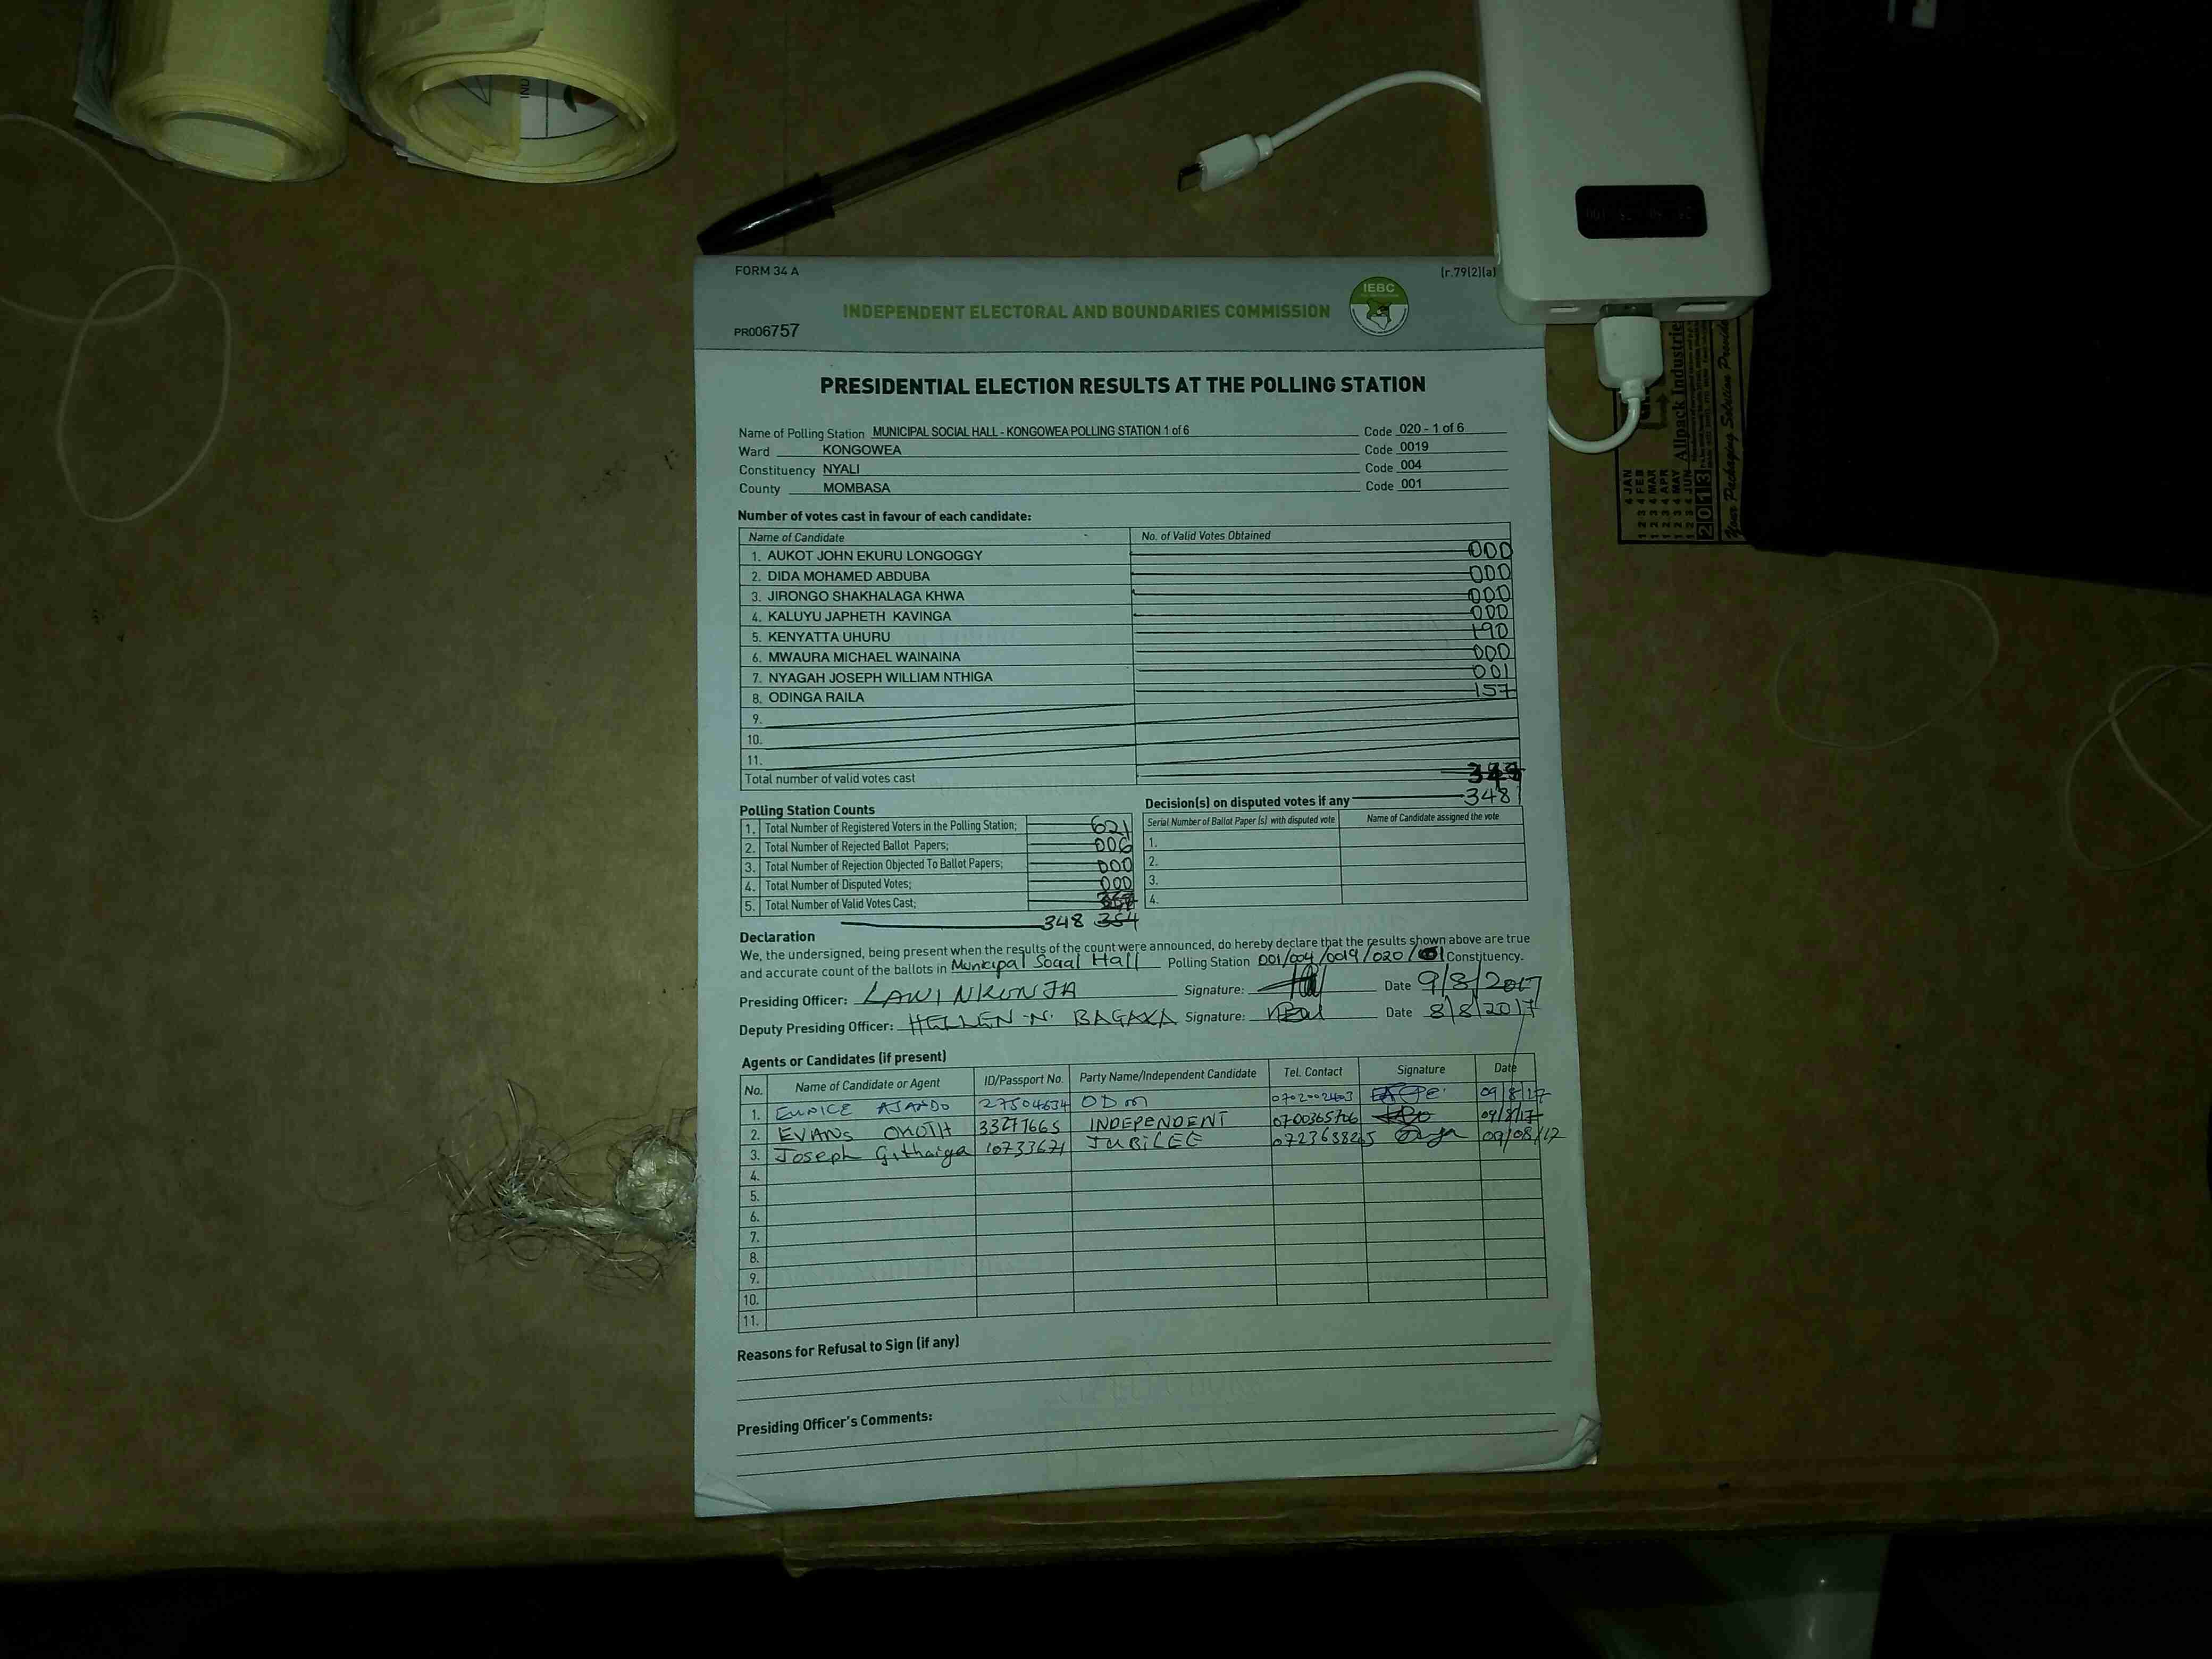 FORM 34 A
(r.79(2)(a)
IEBC
INDEPENDENT ELECTORAL AND BOUNDARIES COMMISSION
PR006757
PRESIDENTIAL ELECTION RESULTS AT THE POLLING STATION
Name of Polling Station MUNICIPAL SOCIAL HALL - KONGOWEA POLLING STATION 1 of 6 Code 020 - 1 of 6
Ward KONGOWEA Code 0019
Constituency NYALI Code 004
County MOMBASA Code 001
Number of votes cast in favour of each candidate:
Name of Candidate No. of Valid Votes Obtained
1. AUKOT JOHN EKURU LONGOGGY 000
2. DIDA MOHAMED ABDUBA 000
3. JIRONGO SHAKHALAGA KHWA 000
4. KALUYU JAPHETH KAVINGA 000
5. KENYATTA UHURU 190
6. MWAURA MICHAEL WAINAINA 000
7. NYAGAH JOSEPH WILLIAM NTHIGA 001
8. ODINGA RAILA 157
9.
10.
11.
Total number of valid votes cast
348
Polling Station Counts
1. Total Number of Registered Voters in the Polling Station; 621
2. Total Number of Rejected Ballot Papers; 006
3. Total Number of Rejection Objected To Ballot Papers; 000
4. Total Number of Disputed Votes; 000
5. Total Number of Valid Votes Cast;
348 354
Decision(s) on disputed votes if any
Serial Number of Ballot Paper (s) with disputed vote Name of Candidate assigned the vote
1.
2.
3.
4.
Declaration
We, the undersigned, being present when the results of the count were announced, do hereby declare that the results shown above are true
and accurate count of the ballots in Municipal Social Hall Polling Station 001/004/0019/020/01 Constituency.
Presiding Officer: LAWI NKUNJA Signature: Date 9/8/2017
Deputy Presiding Officer: HELLEN N. BAGAKA Signature: Date 8/8/2017
Agents or Candidates (if present)
No. Name of Candidate or Agent ID/Passport No. Party Name/Independent Candidate Tel. Contact Signature Date
1. EUNICE AJANDO 27504634 ODM 0702002403 09/8/17
2. EVANS OKOTH 33277665 INDEPENDENT 0700365706 09/8/17
3. Joseph Githaiga 10733671 JUBILEE 0723688265 09/08/17
4.
5.
6.
7.
8.
9.
10.
11.
Reasons for Refusal to Sign (if any)
Presiding Officer's Comments:
Allpack Industrie
Your Packaging Solution Provide
2013
JAN
FEB
MAR
APR
MAY
JUN